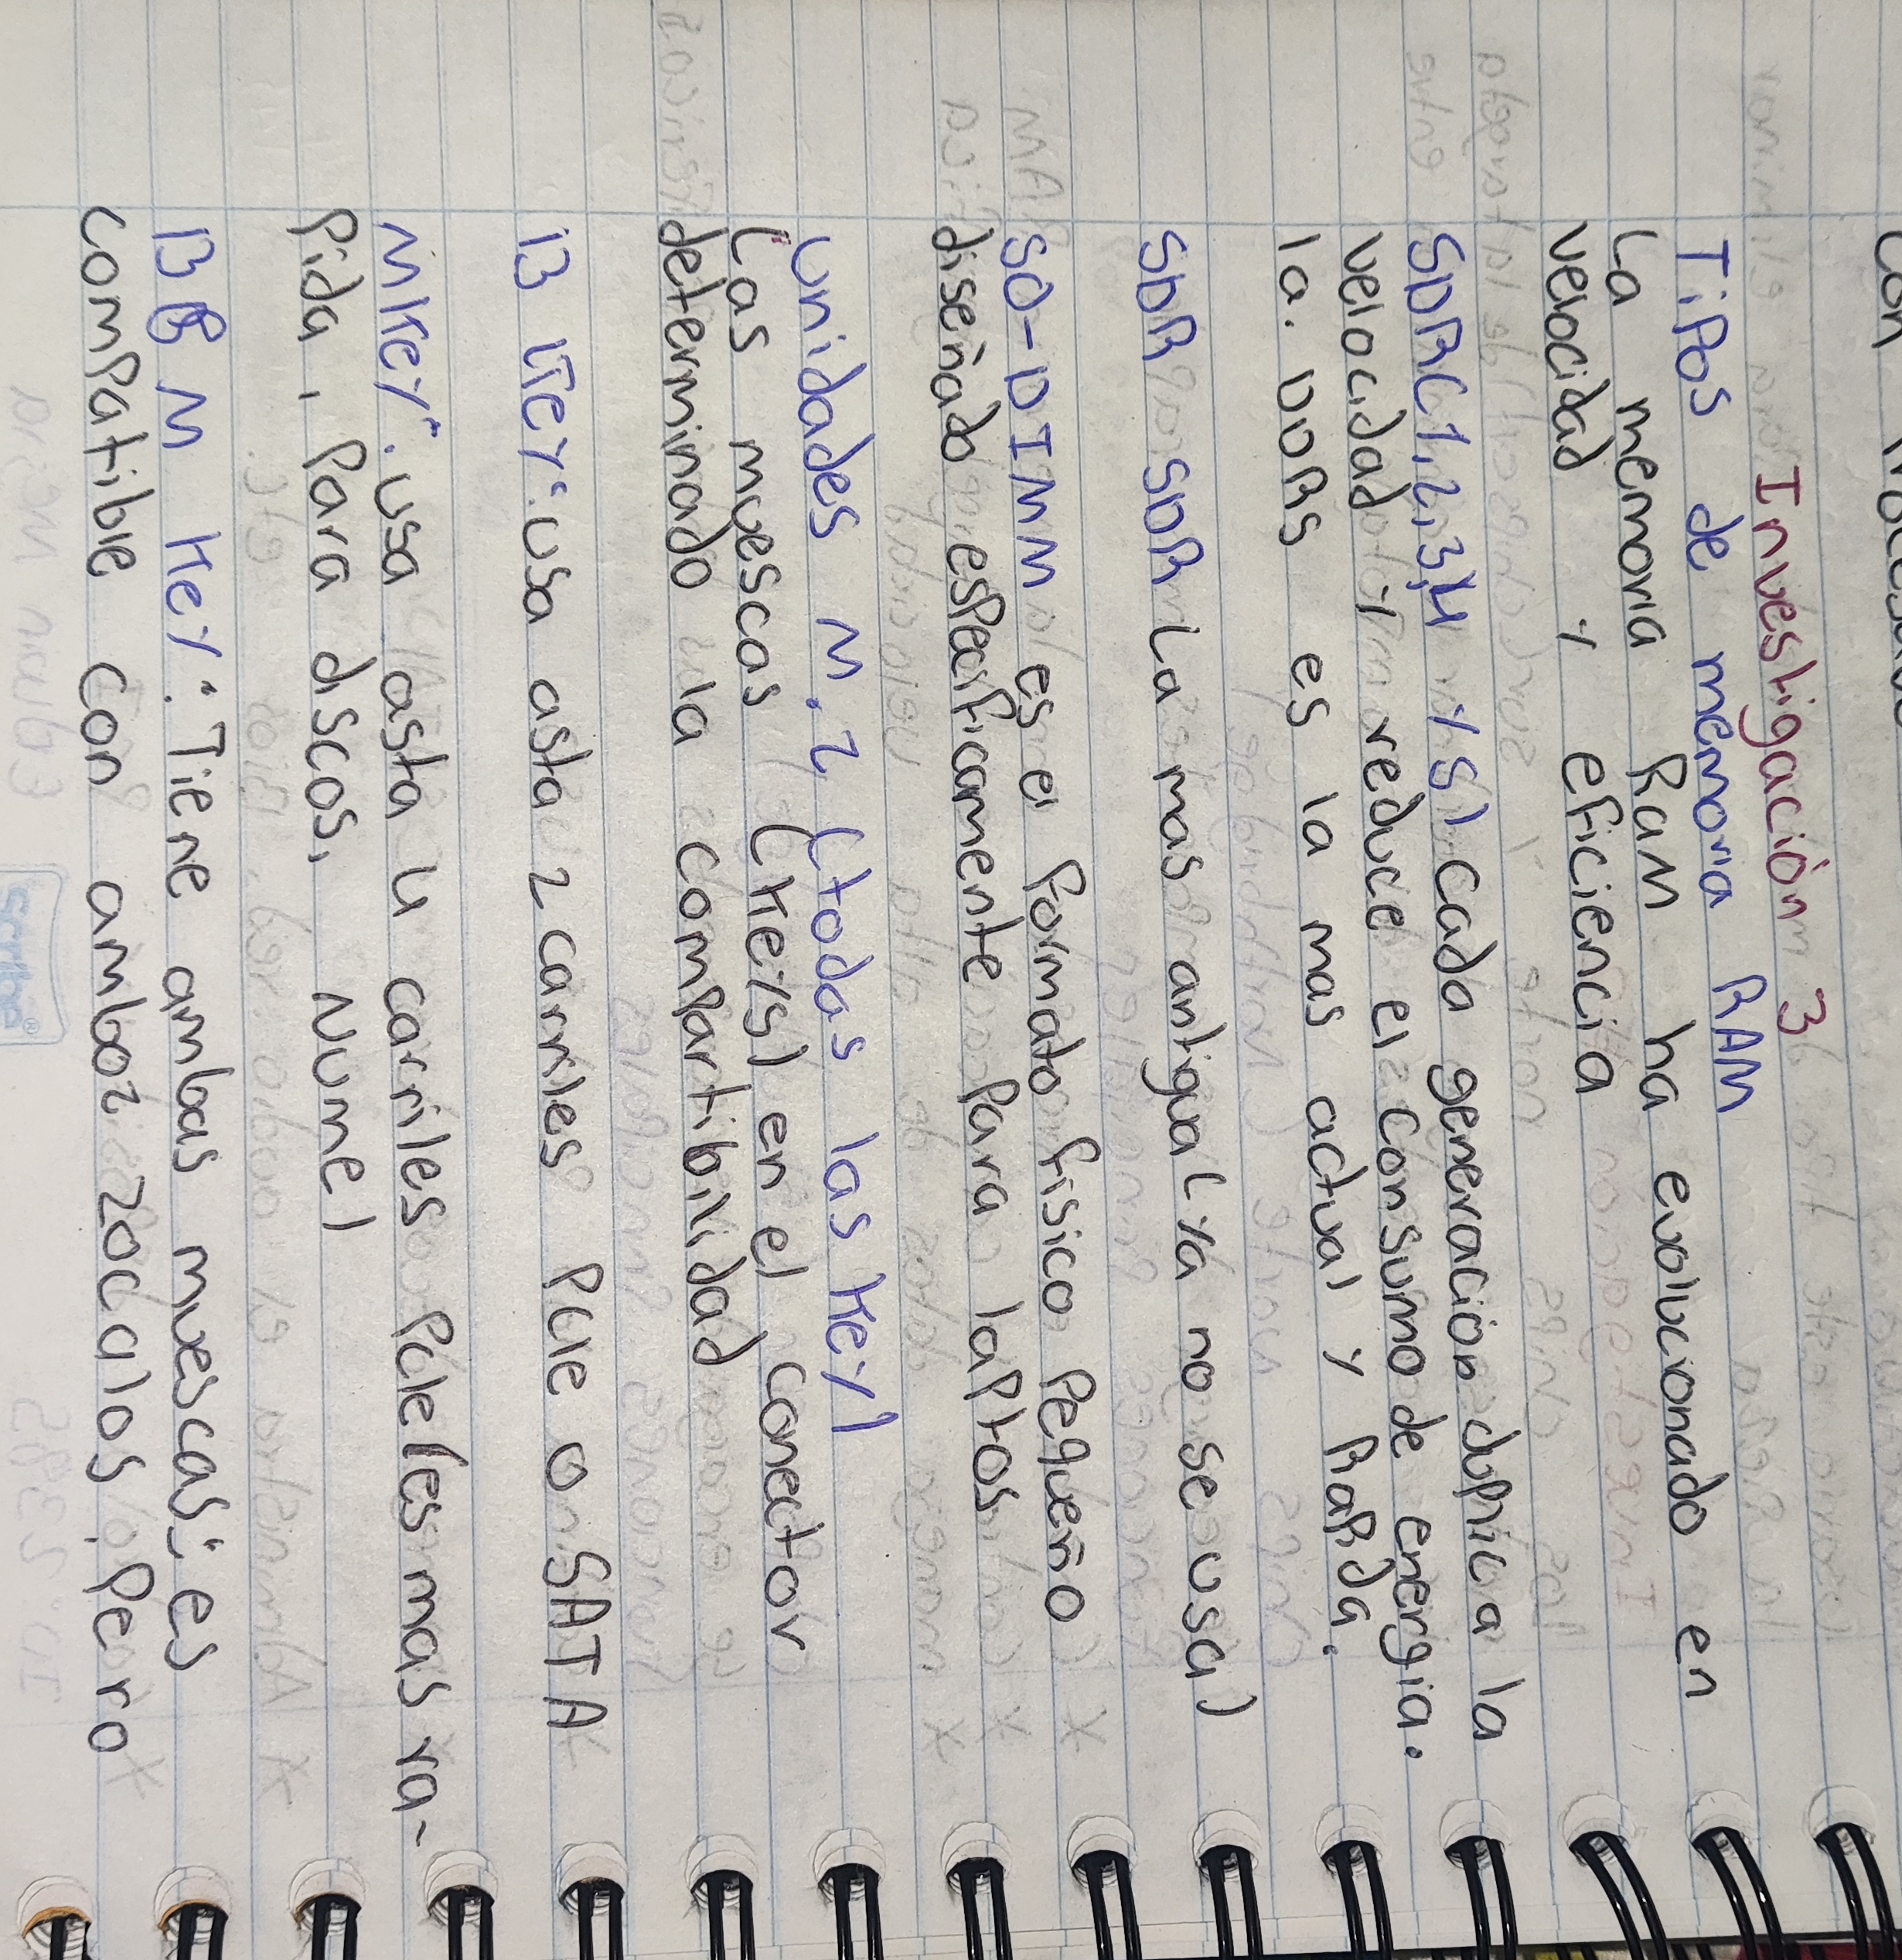 Investigación 3
Tipos de memoria RAM
La memoria Ram ha evolucionado en
velocidad y eficiencia
SDR(1,2,3,4 y 5) cada generacion duplica la
velocidad y reduce el consumo de energia.
la. DDR5 es la mas actual y Rapida.
SDR SDR La mas antigua (ya no se usa)
SO-DIMM es el formato fisico pequeño
diseñado especificamente para laptos
Unidades M.2 (todas las key)
Las muescas (keys) en el conector
determinado la compartibilidad
B key: usa asta 2 carriles PCIe o SATA
M key: usa asta 4 carriles PcIe (es mas ra-
pida, para discos, NVme)
B & M key: Tiene ambas muescas; es
compatible con amboz zocalos, pero